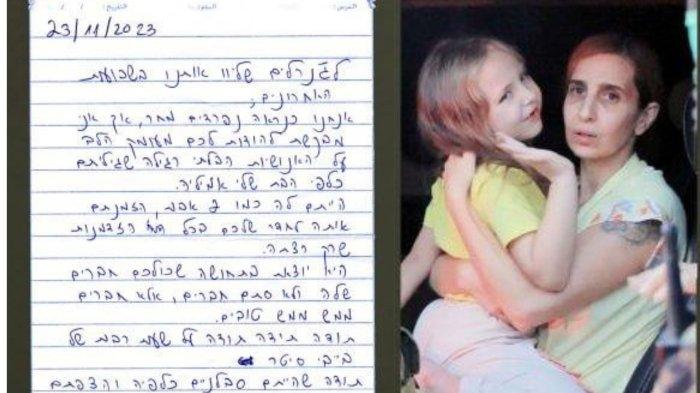 הנדון: הנושא: התאריך:
23/11/2023
לגנרלים שליוו אותנו בשבועות
האחרונים,
אנחנו כנראה נפרדים מחר, אך אני
מבקשת להודות לכם מעומק הלב
על האנושיות הבלתי רגילה שגיליתם
כלפי הבת שלי אמיליה.
הייתם לה כמו אבות, הזמנתם
אותה לחדר שלכם בכל הזדמנות
שרק רצתה.
היא יוצאת בתחושה שכולכם חברים
שלה ולא סתם חברים, אלא חברים
ממש ממש טובים.
תודה תודה תודה על שעות רבות של
בייבי סיטר
תודה שהייתם סבלניים כלפיה והצפתם